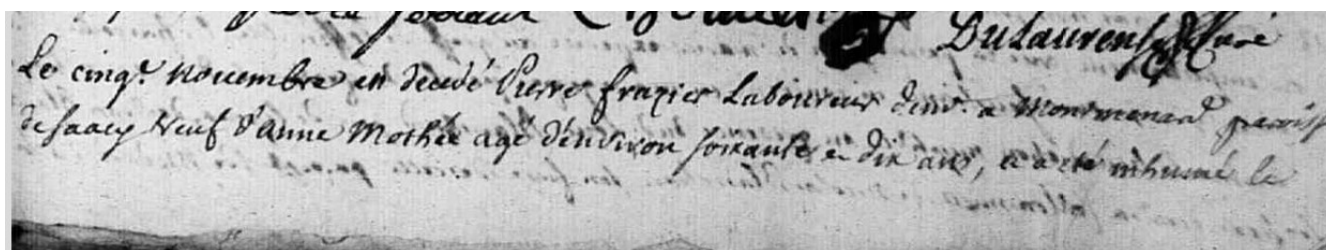 Dulaurens Curé
Le cinq.e novembre est decedé Pierre frazier Laboureur dem.t a Montmenard paroisse
de saacy veuf d'anne Mothée agé d'environ soixante et dix ans, et a eté inhumé le